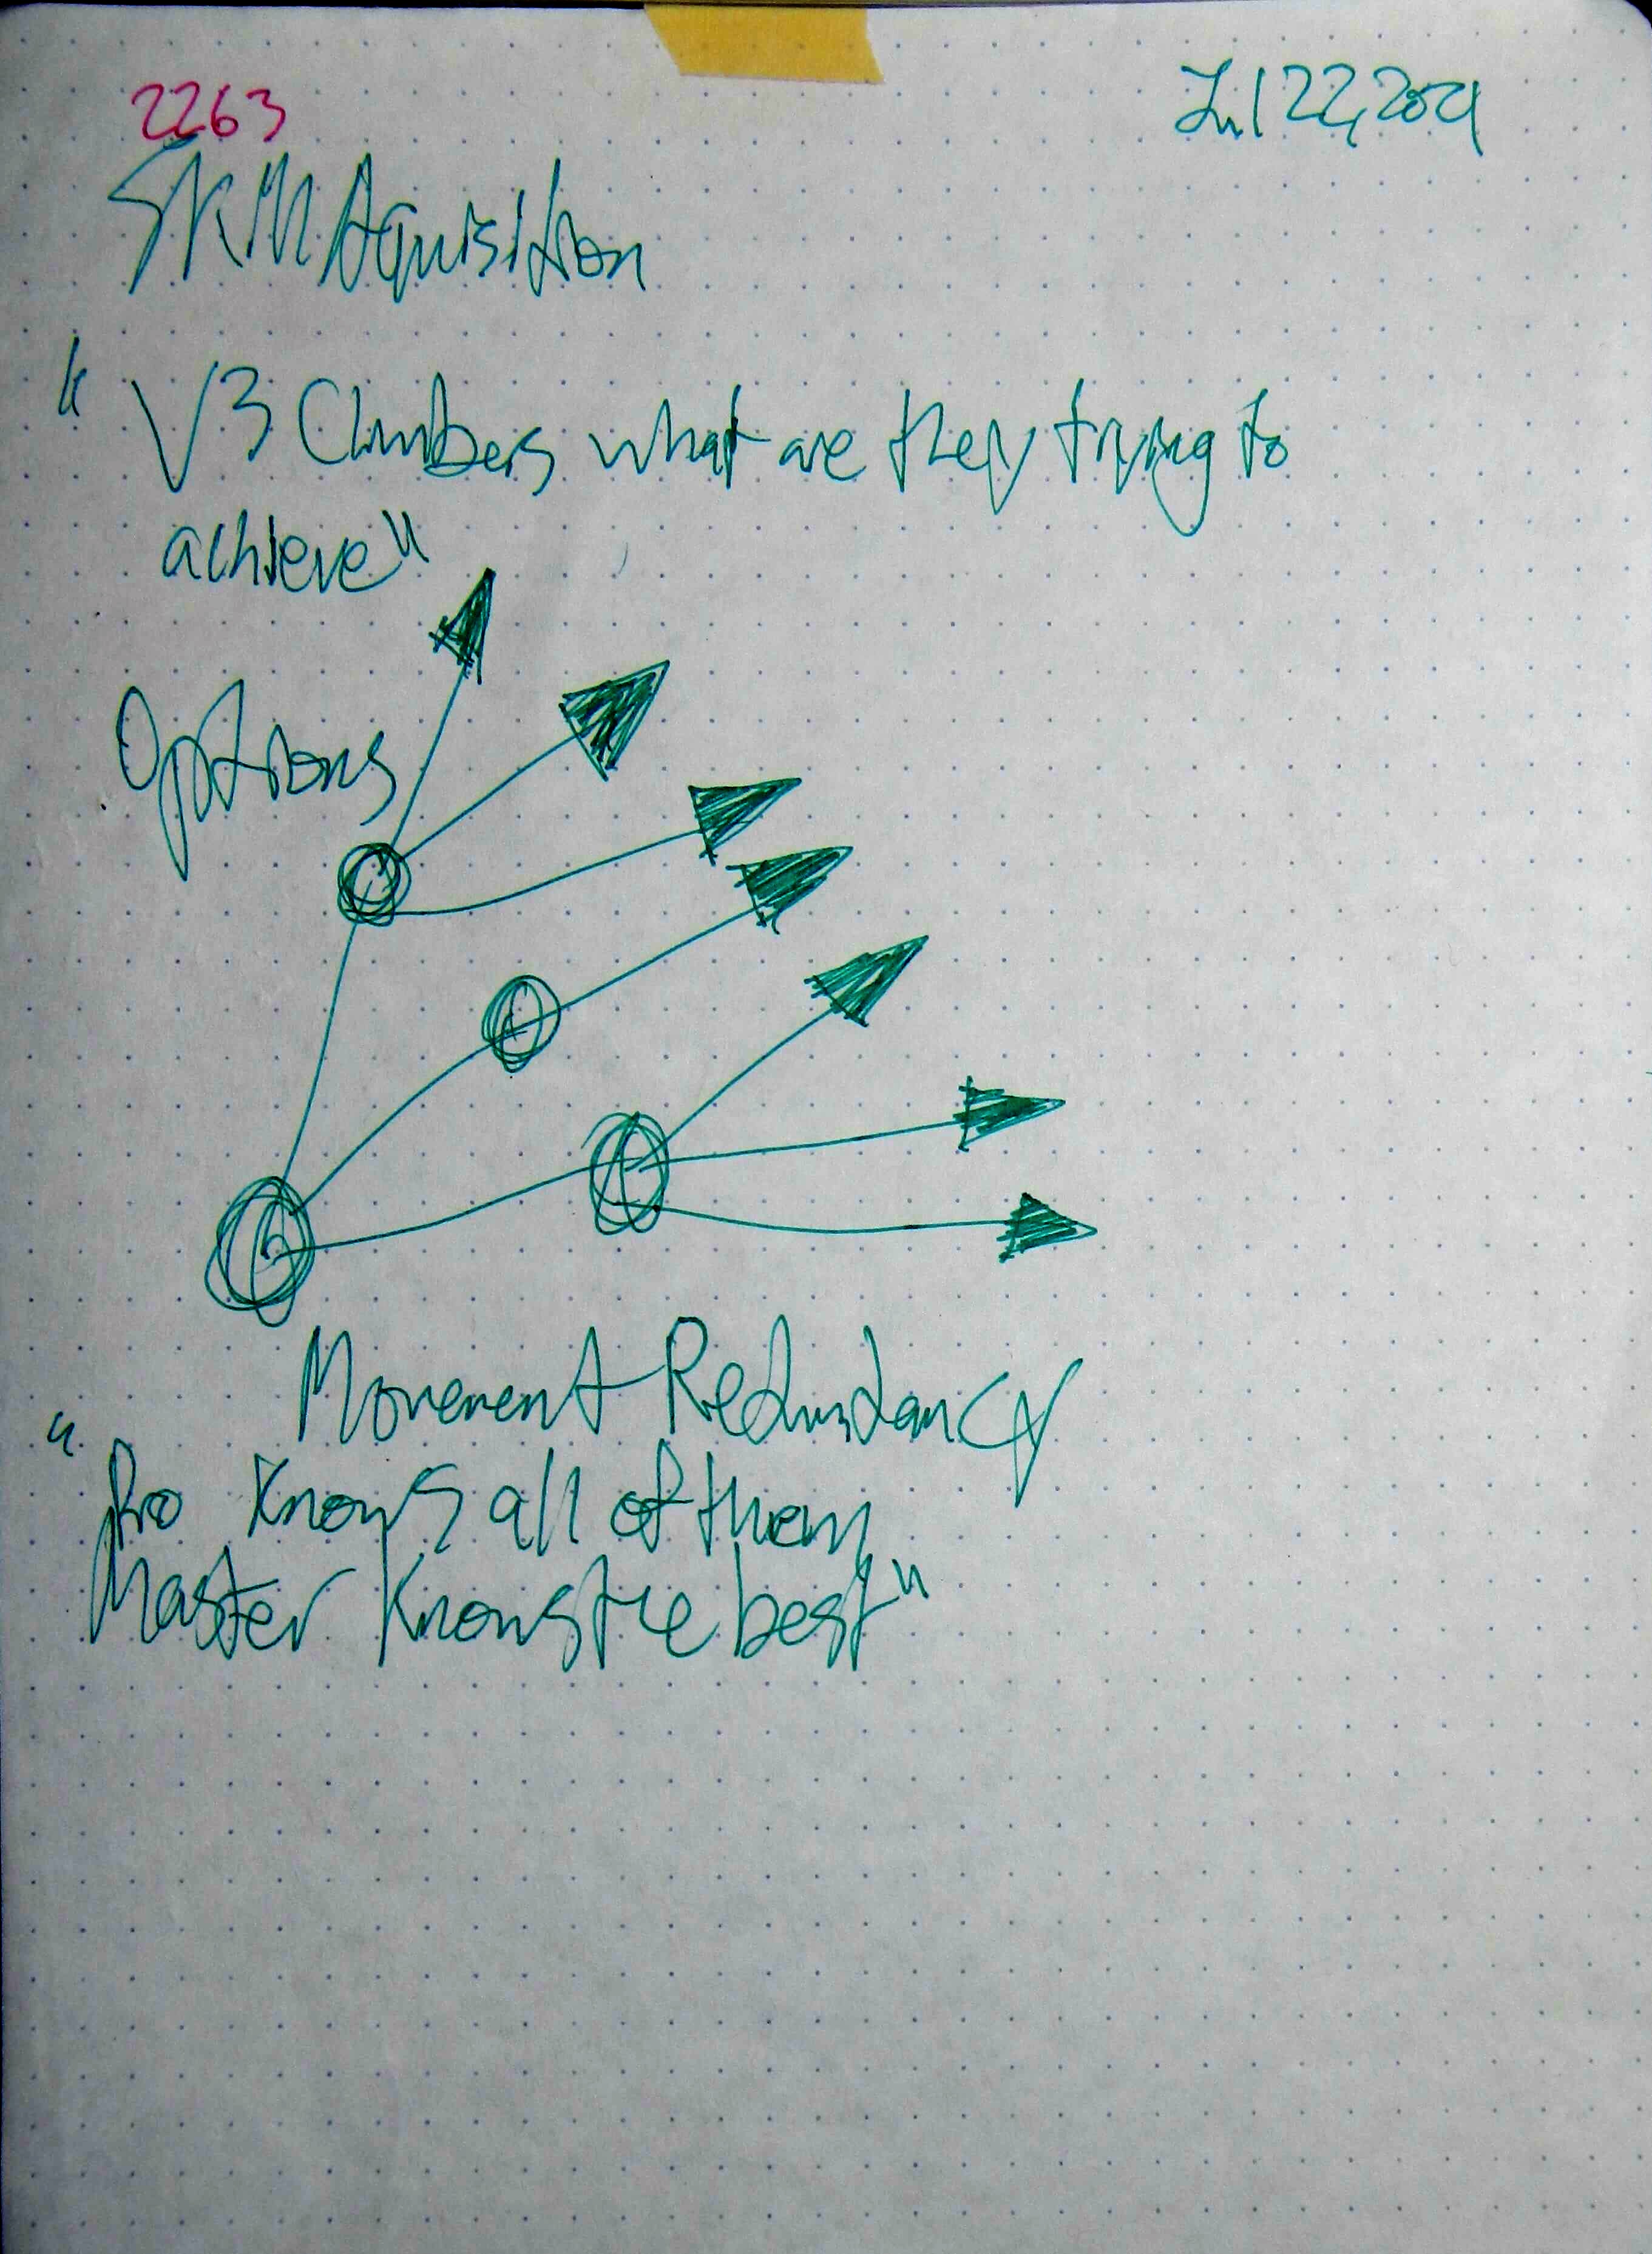 2263
Jul 22, 2021
Skill Aquisition
" V3 Climbers what are they trying to
achieve"
Options
Movement Redundancy
"
Pro Knows all of them
Master Knows the best"